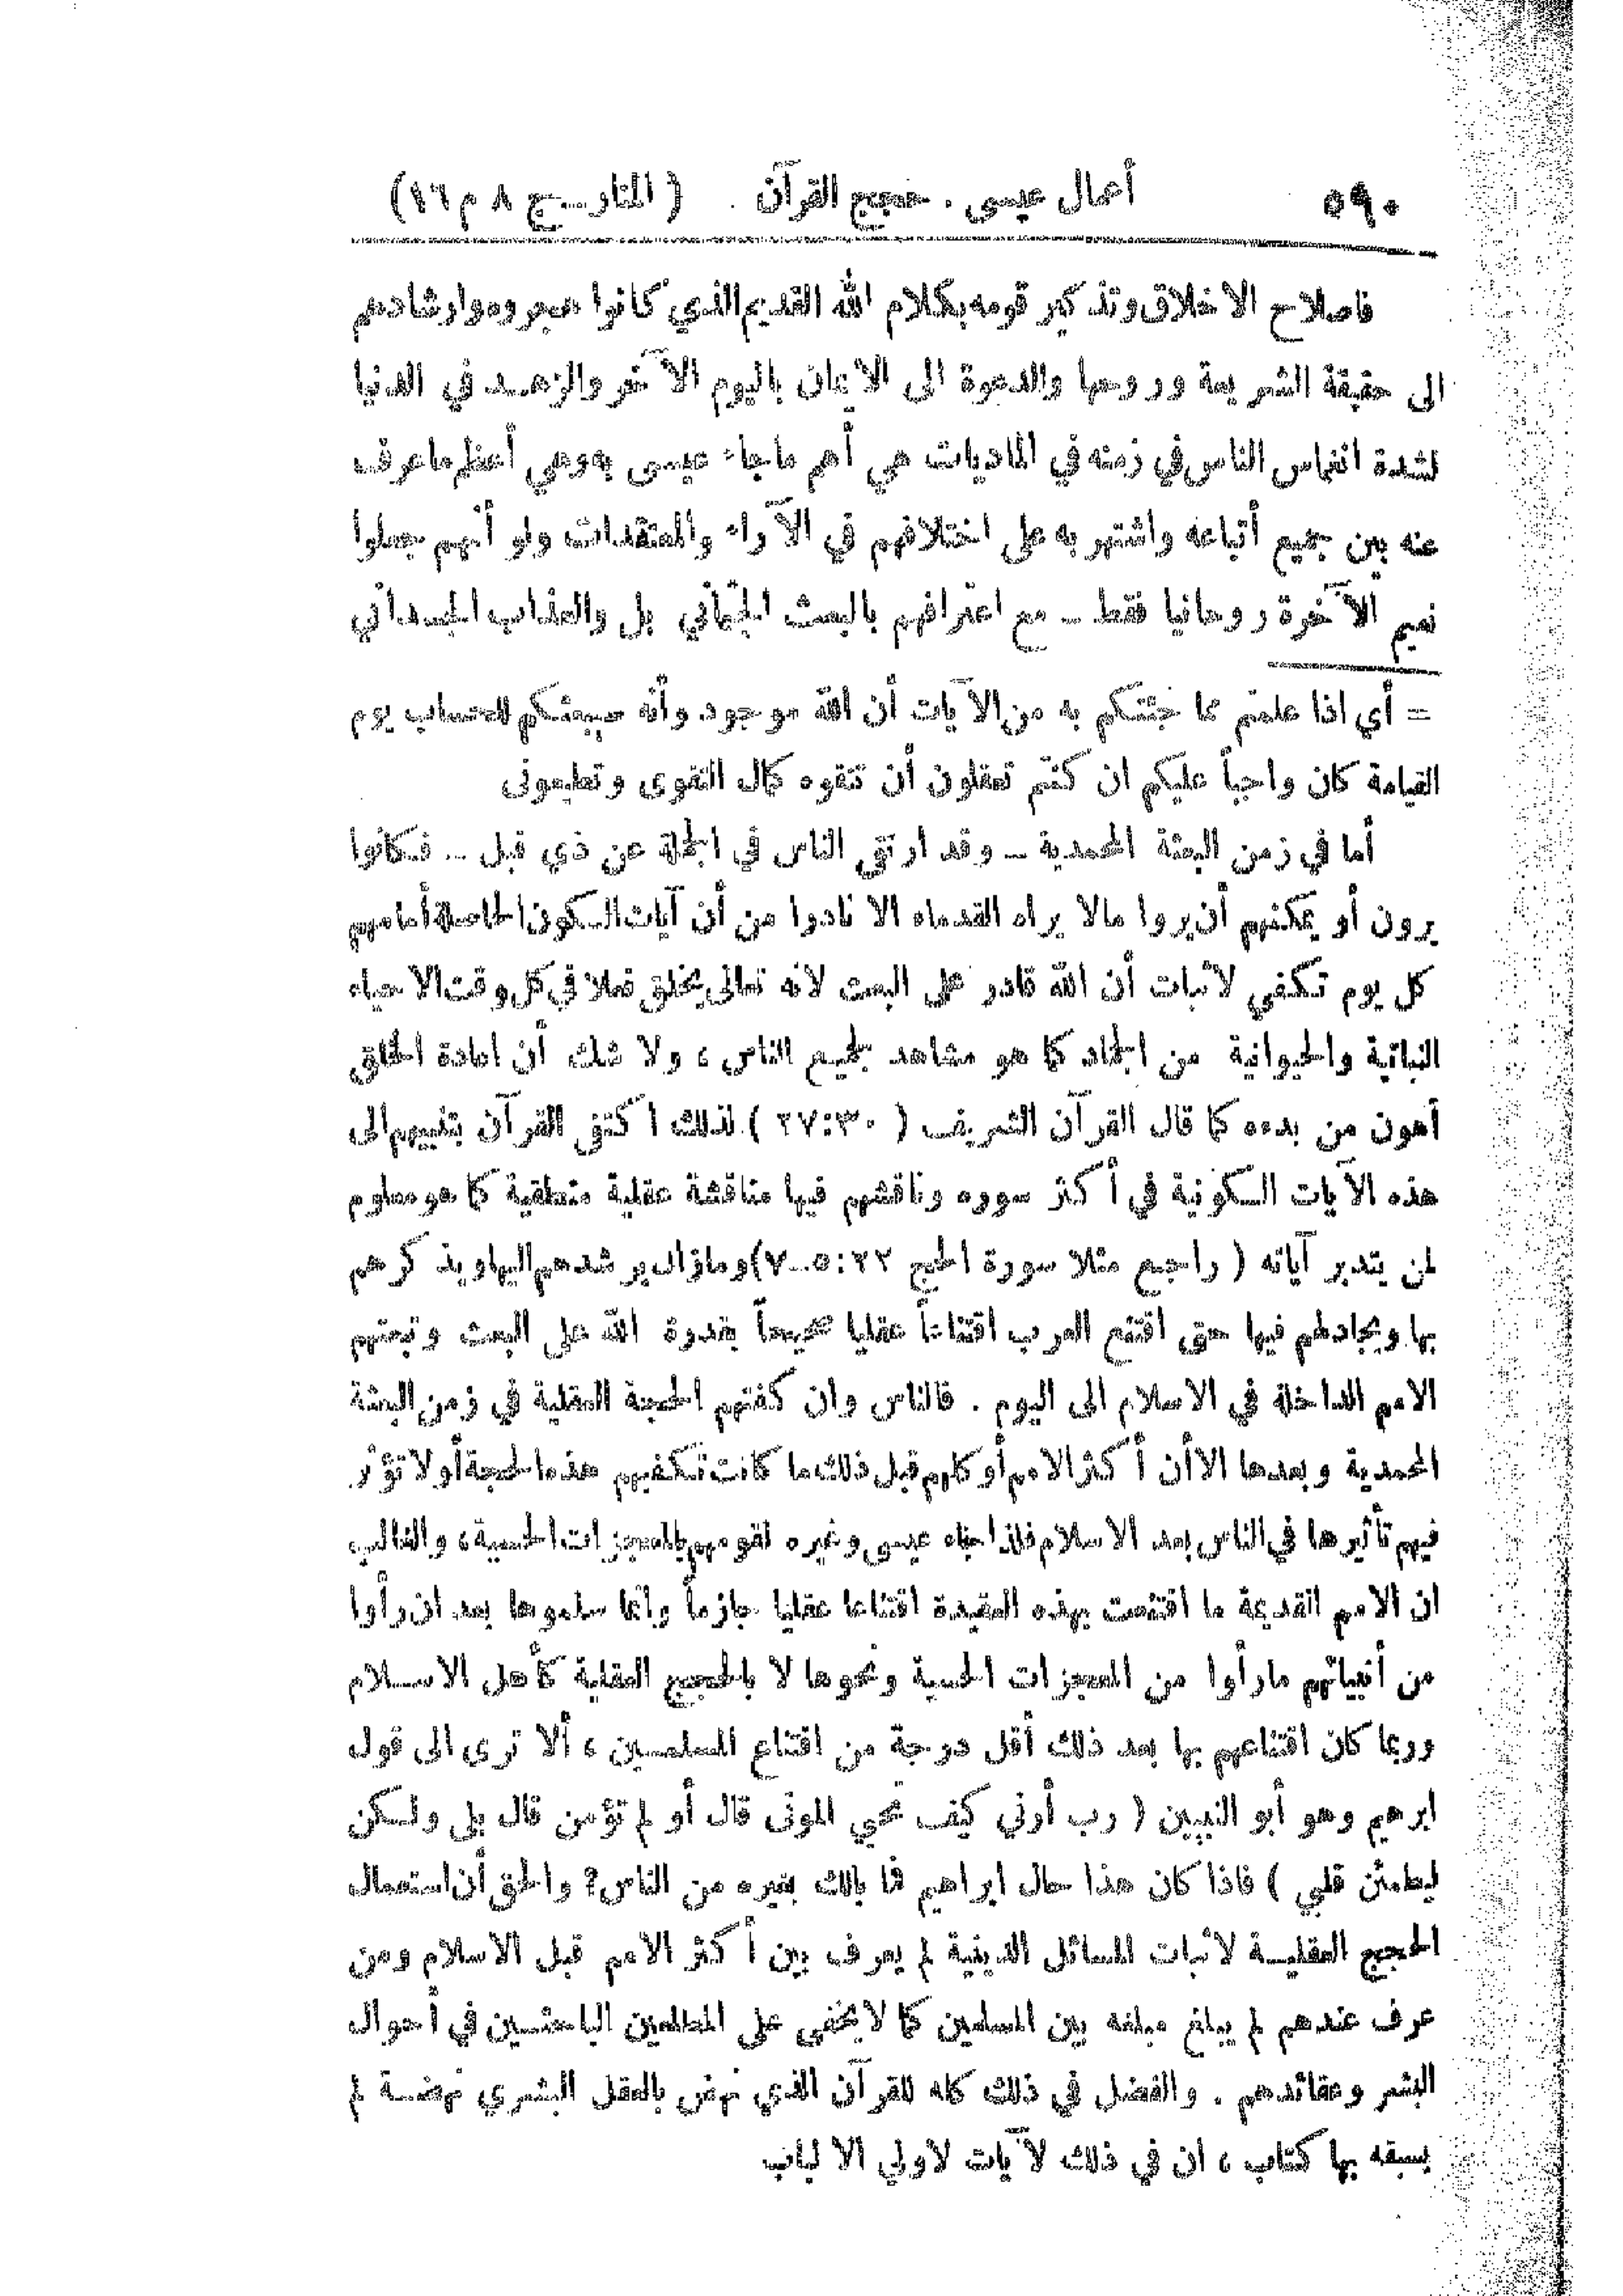 ٥٩٠ أعمال عيسى . حجج القرآن . ( المنار ـ ج ٨ م ١٦)
فاصلاح الاخلاق وتذكير قومه بكلام الله القديم الذي كانوا هجروه وارشادهم
الى حقيقة الشريعة وروحها والدعوة الى الايمان باليوم الآخر والزهد في الدنيا
لشدة انغماس الناس في زمنه في الماديات هي أهم ماجاء عيسى به وهي أعظم ماعرف
عنه بين جميع أتباعه واشتهر به على اختلافهم في الآراء والمعتقدات ولو أنهم جعلوا
نعيم الآخرة روحانيا فقط ـ مع اعترافهم بالبعث الجثماني بل والعذاب الجسداني
= أي اذا علمتم بما جئتكم به من الآيات أن الله موجود وأنه سيبعثكم للحساب يوم
القيامة كان واجباً عليكم ان كنتم تعقلون أن تتقوه كمال التقوى وتطيعونى
أما في زمن البعثة المحمدية ـ وقد ارتقى الناس في الجملة عن ذي قبل ـ فكانوا
يرون أو يمكنهم أن يروا مالا يراه القدماء الا نادرا من أن آيات الكون الحاصلة أمامهم
كل يوم تكفي لاثبات أن الله قادر على البعث لانه تعالى يخلق فعلا في كل وقت الاحياء
النباتية والحيوانية من الجماد كما هو مشاهد لجميع الناس ، ولا شك أن اعادة الخلق
أهون من بدءه كما قال القرآن الشريف ( ٣٠:٢٧ ) لذلك اكتفى القرآن بتنبيههم الى
هذه الآيات الكونية في أكثر سوره وناقشهم فيها مناقشة عقلية منطقية كما هو معلوم
لمن يتدبر آياته ( راجع مثلا سورة الحج ٢٢:٥ـ٧) ومازال يرشدهم اليها ويذكرهم
بها ويجادلهم فيها حتى اقتنع العرب اقتناعاً عقليا صحيحاً بقدرة الله على البعث وتبعتهم
الامم الداخلة في الاسلام الى اليوم . فالناس وان كفتهم الحجة العقلية في زمن البعثة
المحمدية وبعدها الا أن أكثر الامم أو كلهم قبل ذلك ما كانت تكفيهم هذه الحجة أو لا تؤثر
فيهم تأثيرها في الناس بعد الاسلام فلذا جاء عيسى وغيره لقومهم بالمعجزات الحسية ، والغالب
ان الامم القديمة ما اقتنعت بهذه العقيدة اقتناعا عقليا جازماً وانما سلموها بعد ان رأوا
من أنبيائهم مارأوا من المعجزات الحسية ونحوها لا بالحجج العقلية كأهل الاسلام
وربما كان اقتناعهم بها بعد ذلك أقل درجة من اقتناع المسلمين ، ألا ترى الى قول
ابرهيم وهو أبو النبيين ( رب أرني كيف تحي الموتى قال أو لم تؤمن قال بلى ولكن
ليطمئن قلبي ) فاذا كان هذا حال ابراهيم فما بالك بغيره من الناس؟ والحق أن استعمال
الحجج العقلية لاثبات المسائل الدينية لم يعرف بين أكثر الامم قبل الاسلام ومن
عرف عندهم لم يبلغ مبلغه بين المسلمين كما لا يخفى على المطلعين الباحثين في أحوال
البشر وعقائدهم . والفضل في ذلك كله للقرآن الذي نهض بالعقل البشري نهضة لم
يسبقه بها كتاب ، ان في ذلك لآيات لاولي الالباب